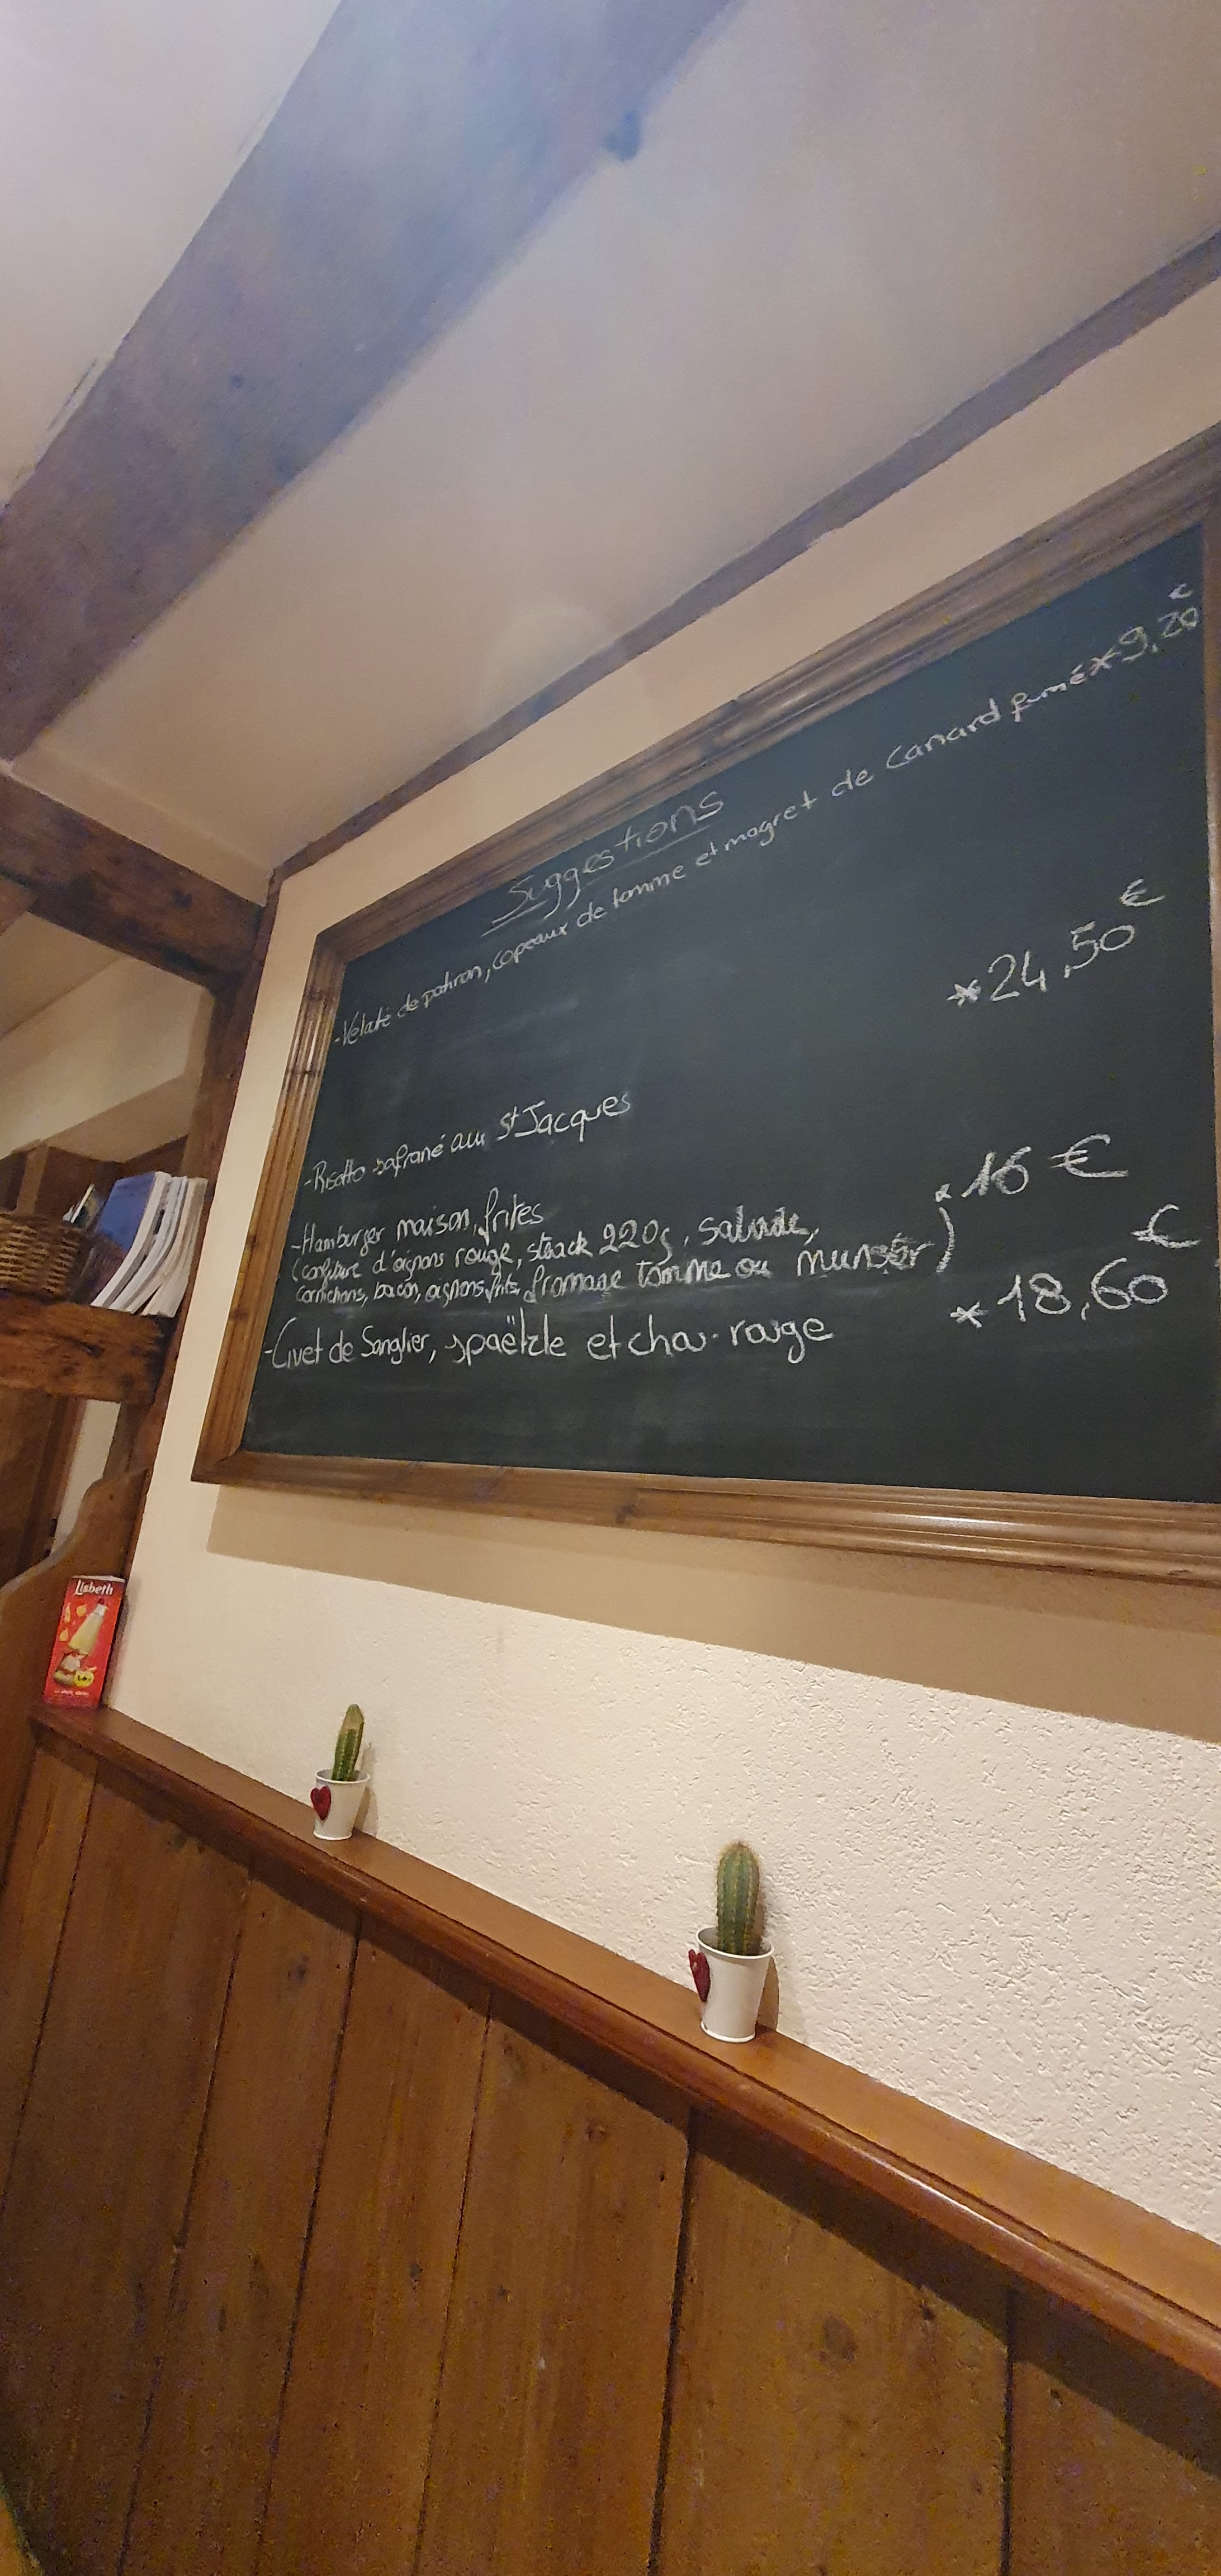 Suggestions
-Velouté de potiron, copeaux de tomme et magret de Canard fumé * 9,20 €
-Risotto safrané aux St Jacques * 24,50 €
-Hamburger maison, frites * 16 €
(confiture d'oignons rouge, steack 220g, salade,
cornichons, bacon, oignons frits, fromage tomme ou munster)
-Civet de Sanglier, spaëtzle et chou rouge * 18,60 €
Lisbeth